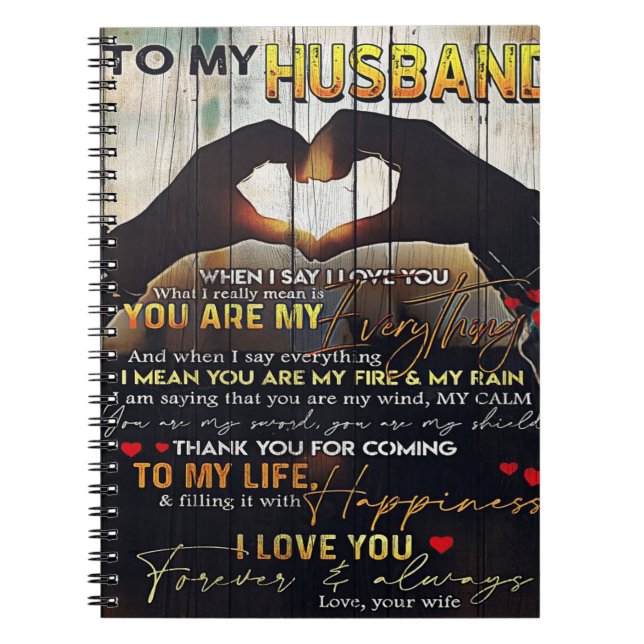 TO MY HUSBAND
WHEN I SAY I LOVE YOU
What I really mean is
YOU ARE MY Everything
And when I say everything
I MEAN YOU ARE MY FIRE & MY RAIN
I am saying that you are my wind, MY CALM
You are my sword, you are my shield
THANK YOU FOR COMING
TO MY LIFE,
& filling it with Happiness
I LOVE YOU
Forever & always
Love, your wife